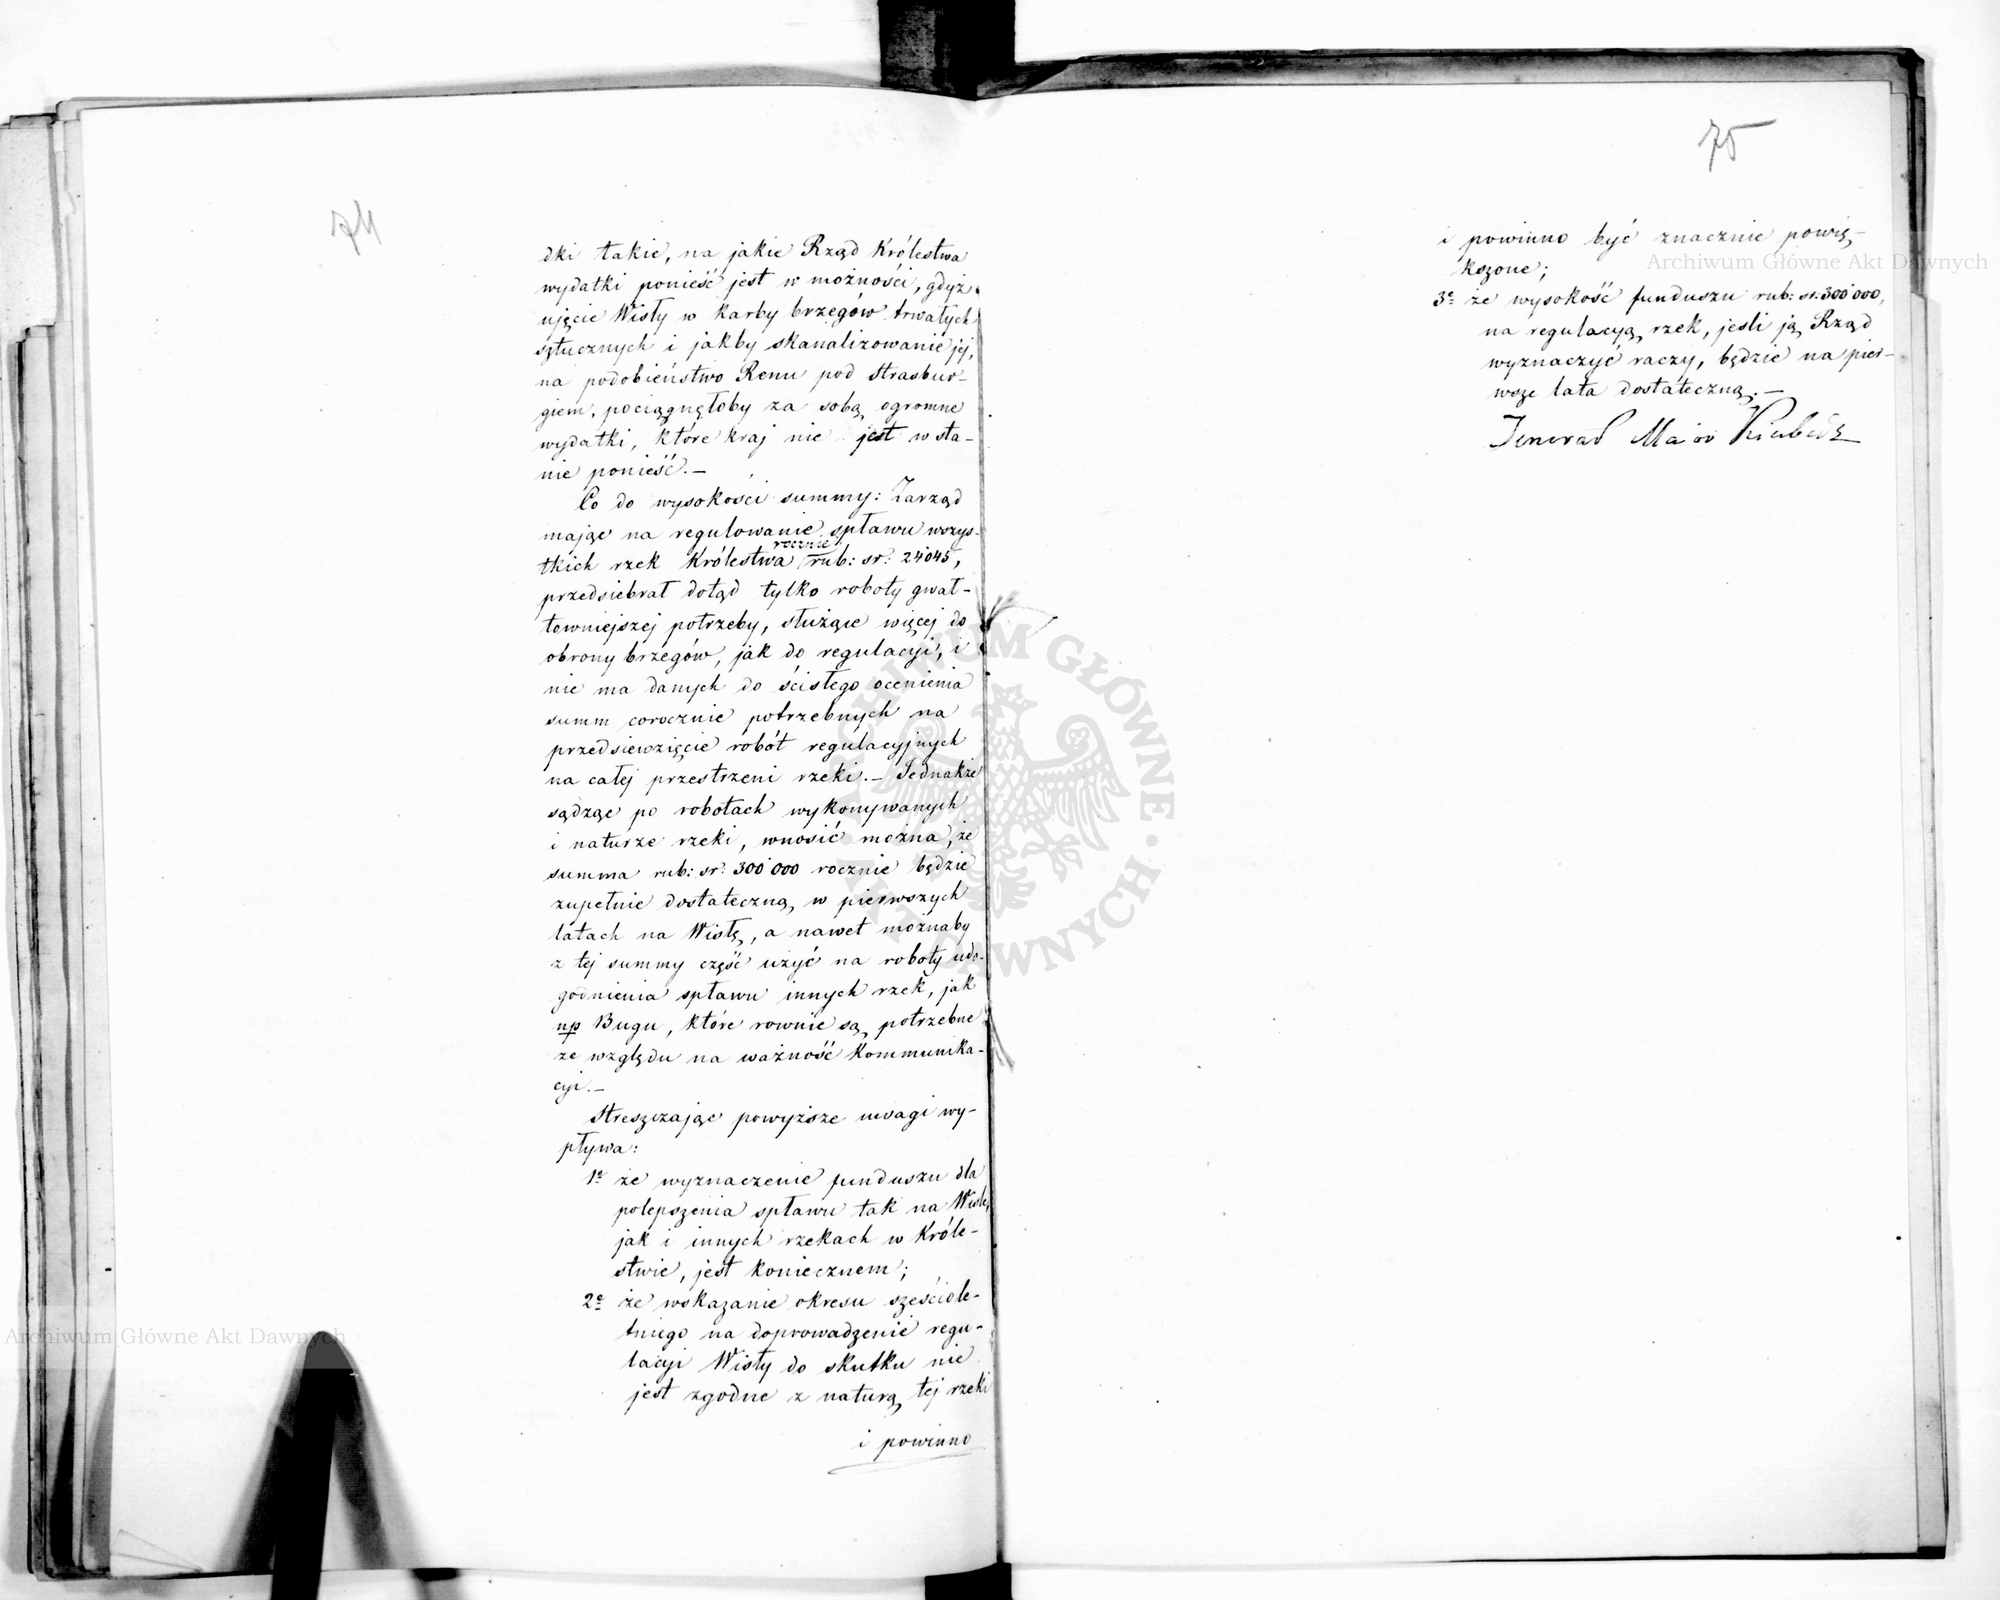 74
dki takie, na jakie Rząd Królestwa
wydatki ponieść jest w możności, gdyż
ujęcie Wisły w karby brzegów trwałych
sztucznych i jakby skanalizowanie jej,
na podobieństwo Renu pod Strasbur-
giem, pociągnęłoby za sobą ogromne
wydatki, które kraj nie jest w sta-
nie ponieść.—
Co do wysokości summy: Zarząd
mając na regulowanie spławu wszys-
tkich rzek Królestwa rocznie rub: sr: 24045,
przedsiebrał dotąd tylko roboty gwał-
towniejszej potrzeby, służące więcej do
obrony brzegów, jak do regulacyi, i
nie ma danych do ścisłego ocenienia
summ corocznie potrzebnych na
przedsiewzięcie robót regulacyjnych
na całej przestrzeni rzeki.— Jednakże
sądząc po robotach wykonywanych
i naturze rzeki, wnosić można, że
summa rub: sr: 300'000 rocznie będzie
zupełnie dostateczną, w pierwszych
latach na Wisłę, a nawet możnaby
z tej summy część użyć na roboty udo-
godnienia spławu innych rzek, jak
np Bugu, które rownie są potrzebne
ze względu na ważność kommunika-
cyi.—
Streszczając powyższe uwagi wy-
pływa:
1e że wyznaczenie funduszu dla
polepszenia spławu tak na Wiśle,
jak i innych rzekach w Króle-
stwie, jest koniecznem;
2e że wskazanie okresu sześciole-
tniego na doprowadzenie regu-
lacyi Wisły do skutku nie
jest zgodne z naturą tej rzeki
i powinno
75
i powinno być znacznie powię-
kszone;
3e że wysokość funduszu rub: sr: 300'000,
na regulacyą rzek, jesli ją Rząd
wyznaczyć raczy, będzie na pier-
wsze lata dostateczną.—
Jenerał Major
Archiwum Główne Akt Dawnych
Archiwum Główne Akt Dawnych
ARCHIWUM GŁÓWNE AKT DAWNYCH